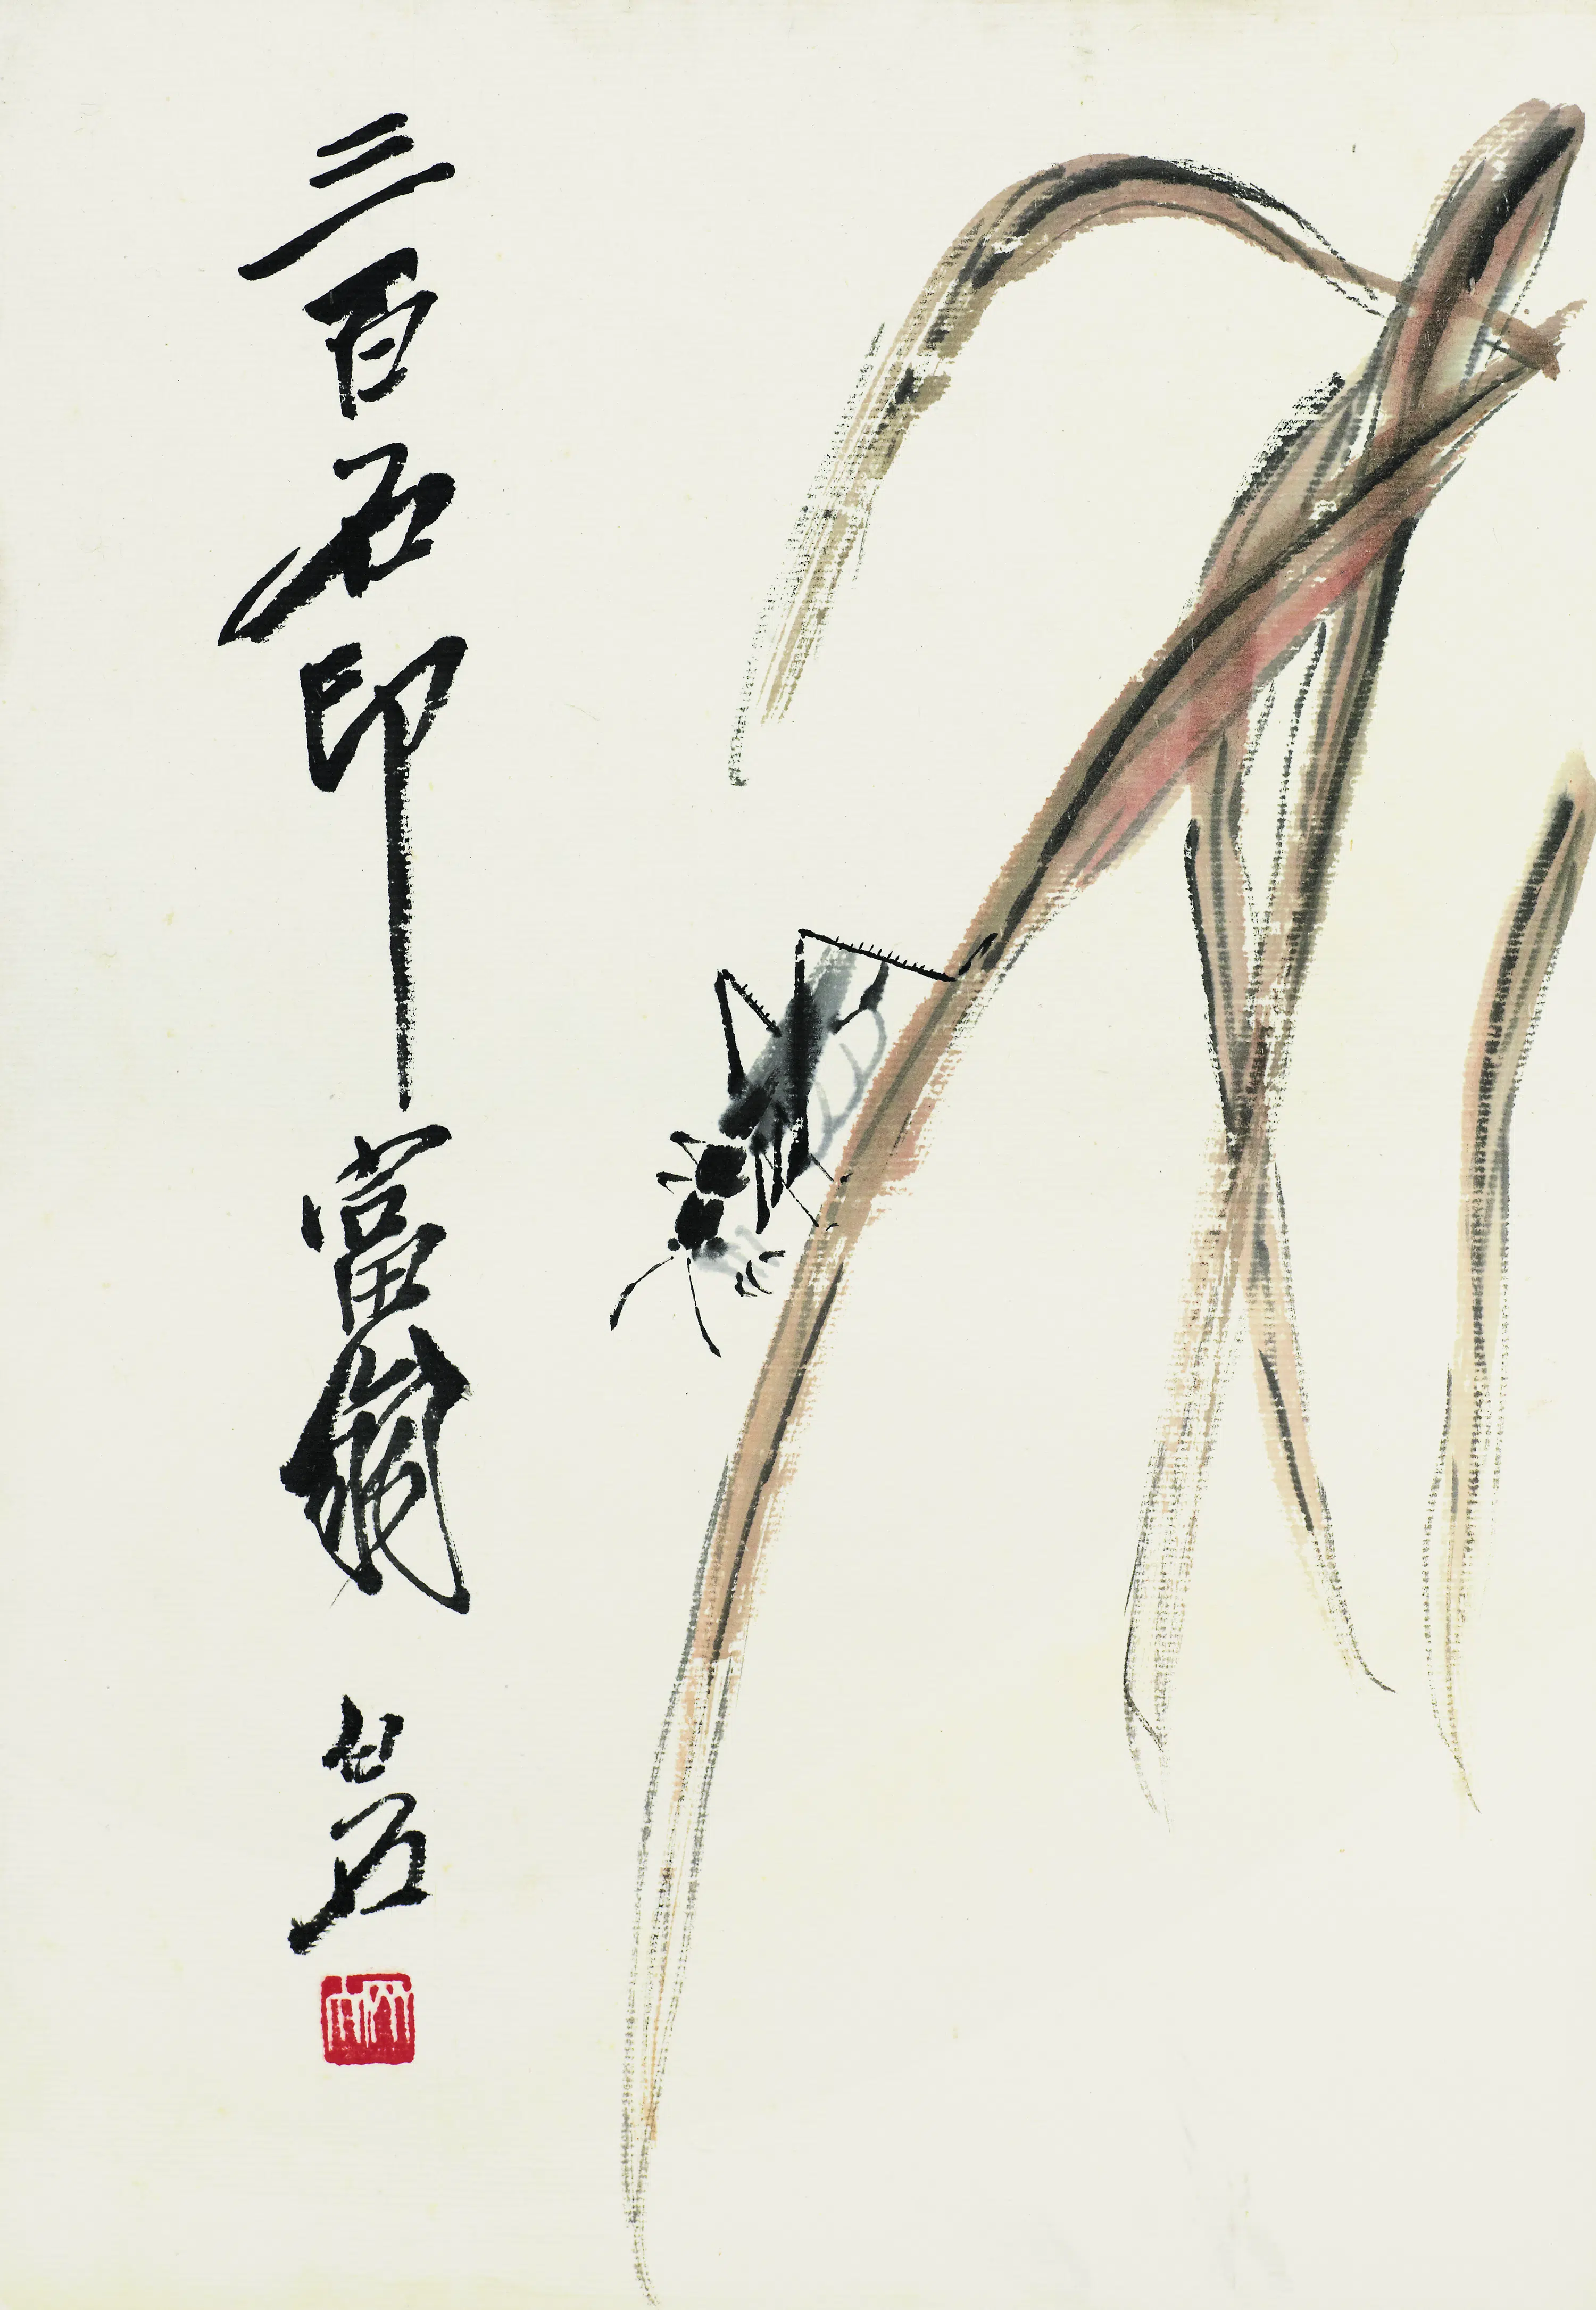 三百石印富翁 白石